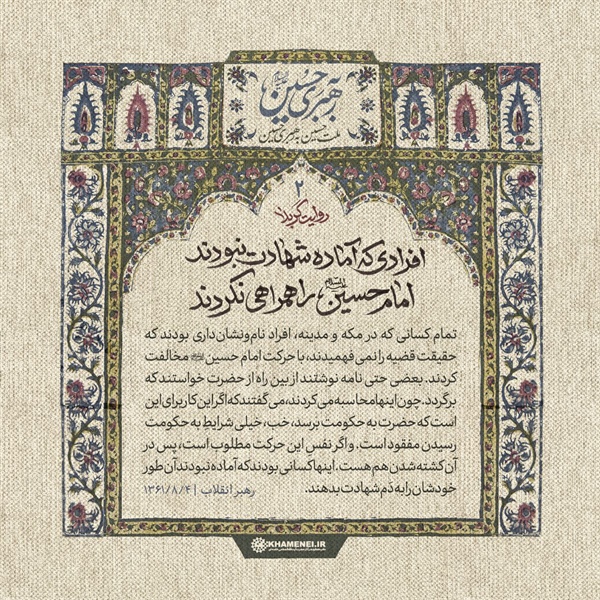 به رهبری حسین
ملت حسین به رهبری حسین
۲
روایت کربلا
افرادی که آماده شهادت نبودند
امام حسین علیه‌السلام را همراهی نکردند
تمام کسانی که در مکه و مدینه، افراد نام‌ونشان‌داری بودند که
حقیقت قضیه را نمی‌فهمیدند، با حرکت امام حسین مخالفت
کردند. بعضی حتی نامه نوشتند از بین راه از حضرت خواستند که
برگردد. چون اینها محاسبه می‌کردند، می‌گفتند که اگر این کار برای این
است که حضرت به حکومت برسد، خب، خیلی شرایط به حکومت
رسیدن مفقود است. و اگر نفس این حرکت مطلوب است، پس در
آن کشته شدن هم هست. اینها کسانی بودند که آماده نبودند آن طور
خودشان را به دَم شهادت بدهند. رهبر انقلاب | ۱۳۶۱/۸/۴
KHAMENEI.IR